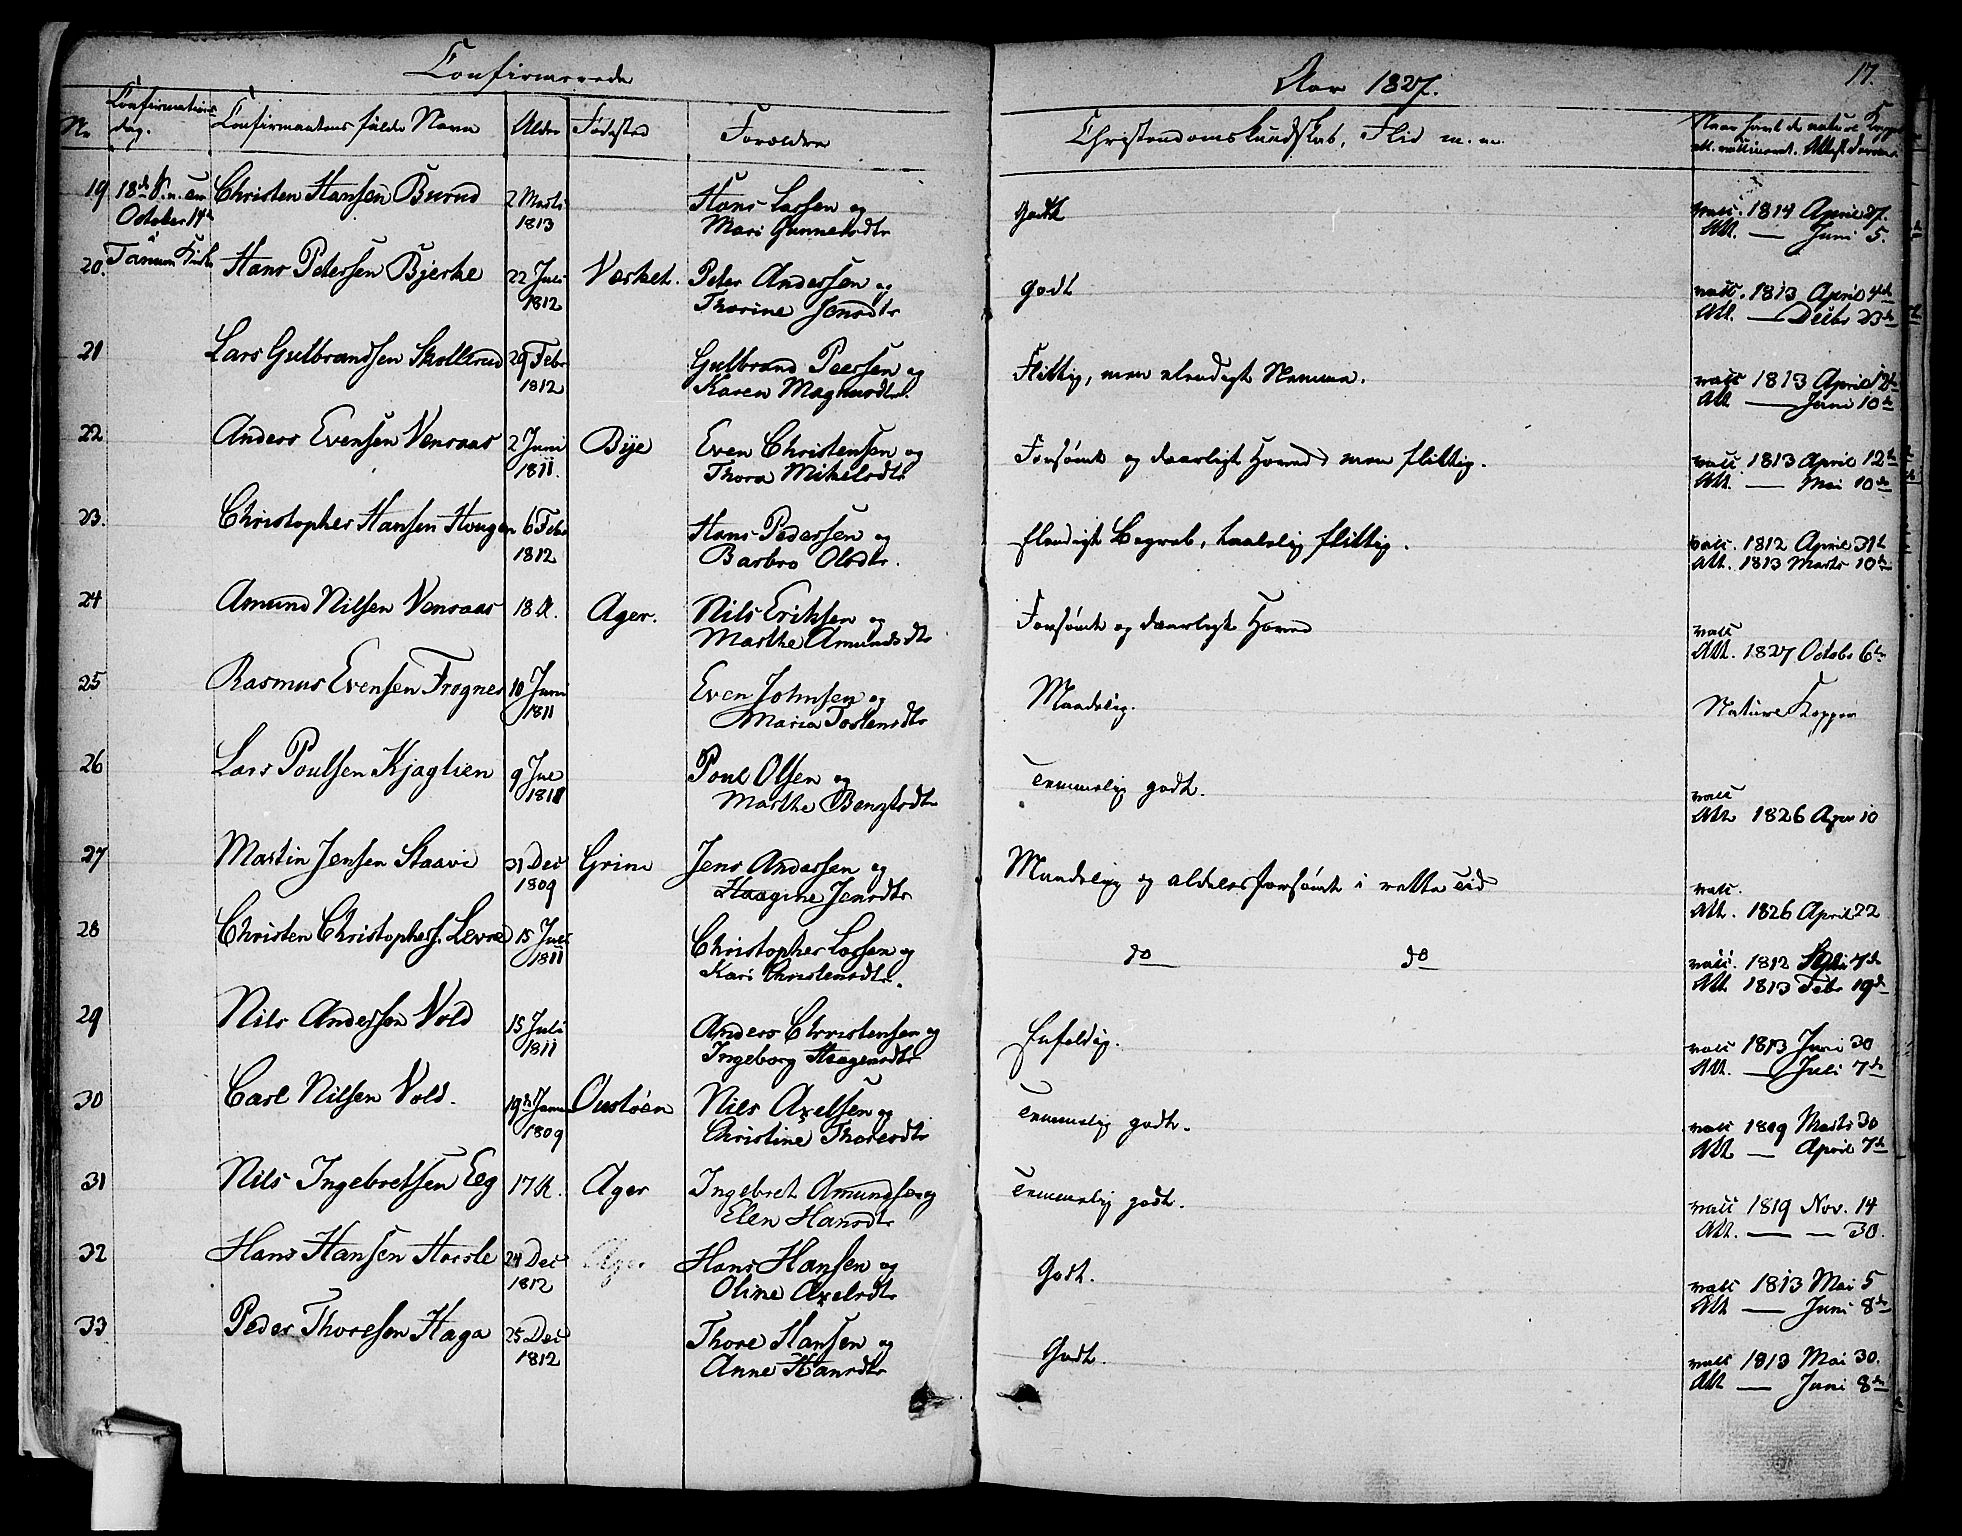 Confirmerede
Aar 1827.
17.
Nr.
Confirmations
dag.
Confirmantens fulde Navn
Alder
Fødested
Forældre
Christendomskundskab, Flid m. m.
Naar havt de naturl. Kopper
ell. vaccineret. Attest derom
19
18de S. n. Trin
October 14de
Christen Hansen Burud
2 Marts
1813
Hans Larsen og
Mari Gunnelsdtr
Godt
vacc. 1814 April 27.
Att. — Juni 5.
Tanum Kirke
20.
Hans Petersen Bjerke
22 Juli
1812
Væsket.
Peter Andersen og
Thorine Jensdtr
Godt
vacc. 1813 April 4de
Att. — Decbr 23de
21
Lars Gulbrandsen Skollerud
29 Febr
1812
Gulbrand Peersen og
Karen Magnusdtr.
Flittig, men elendigt Nemme.
vacc 1813 April 12te
Att — Juni 10de
22
Anders Evensen Vensaas
2 Juni
1811.
Bye
Even Christensen og
Thora Mikelsdtr
Forsømt og daarligt Hoved, men flittig.
vacc 1813 April 12te
Att. — Mai 10de
23.
Christopher Hansen Hougen
6 Febr
1812
Hans Pedersen og
Barbro Olsdtr.
Elendigt Begreb, taalelig flittig.
vacc. 1812 April 31te
Att. 1813 Marts 10de
24
Amund Nilsen Vensaas
18 A.
Ager.
Nils Eriksen og
Marthe Amundsdtr
Forsømt og daarligt Hoved
vacc
Att. 1827 Octobr 6te
25
Rasmus Evensen Frogner
10 Juni
1811
Even Johnsen og
Maria Tostensdtr
Maadelig.
Naturl. Kopper
26
Lars Poulsen Kjaglien
9 Jul
1811
Poul Olsen og
Marthe Bengtsdtr
Temmelig godt.
vacc
Att 1826 Apr 10
27
Martin Jensen Staavi
31 Dec
1809
Grini
Jens Andersen og
Haagine Jensdtr
Maadelig og aldeles forsømt i rette Tid
vacc.
Att. 1826 April 22
28
Christen Christophers. Levre
15 Juli
1811
Christopher Larsen og
Kari Christensdtr.
do do
vacc. 1812 Septr 7de
Att 1813 Febr 19de
29
Nils Andersen Vold
15 Juli
1811
Anders Christensen og
Ingeborg Haagensdtr
Enfoldig.
vacc 1813 Juni 30
Att. — Juli 7de
30
Carl Nilsen Vold.
19de Janu
1809
Oustøen
Nils Axelsen og
Christine Thoresdtr
Temmelig godt.
vacc 1809 Marts 30
Att — April 7de
31
Nils Ingebretsen Eeg
17 A.
Ager
Ingebret Amundsen og
Elen Hansdtr
Temmelig godt.
vacc 1819 Nov. 14
Att. — — 30.
32
Hans Hansen Horsle
24 Dec
1812
Ager
Hans Hansen og
Oline Axelsdtr
Godt.
vacc 1813 Mai 5
Att — Juni 8de
33
Peder Thoresen Haga
25 Dec
1812
Thore Hansen og
Anne Hansdtr
Godt.
vacc 1813 Mai 30.
Att — Juni 8de